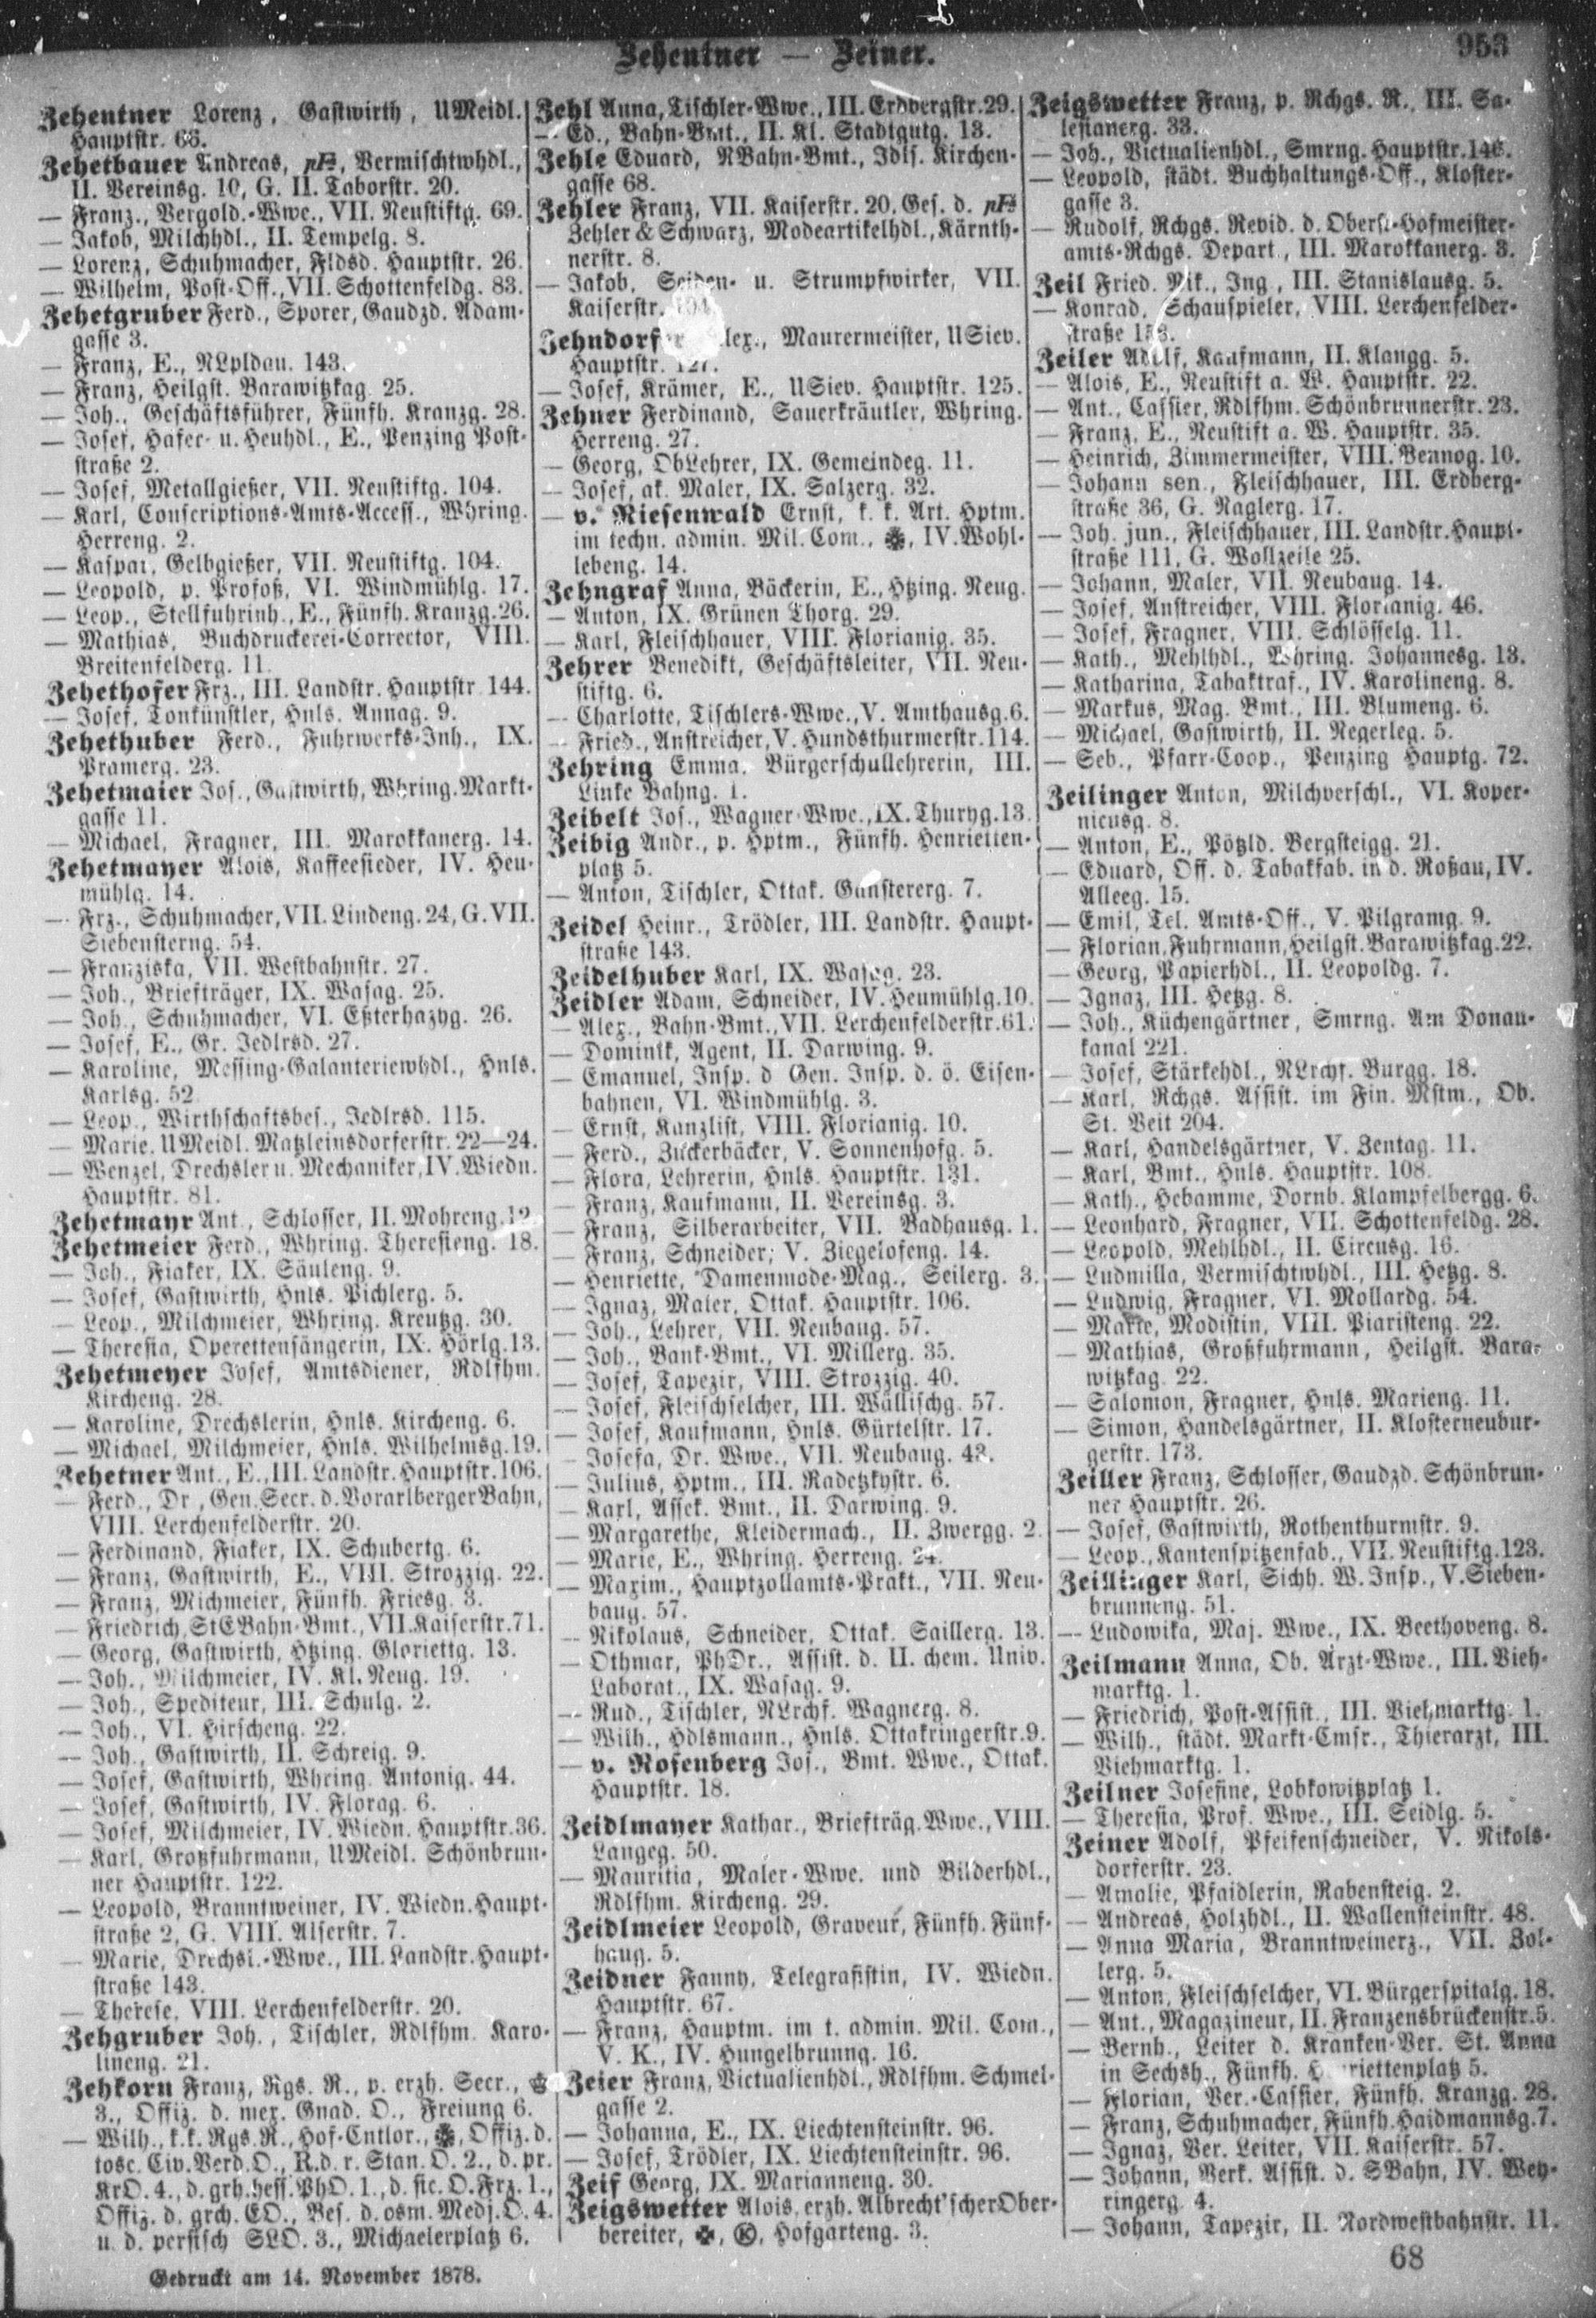 Zehentner — Zeiner.
953
Zehentner Lorenz, Gastwirth, UMeidl.
Hauptstr. 66.
Zehetbauer Andreas, Vermischtwhdl.,
II. Vereinsg. 10, G. II. Taborstr. 20.
— Franz., Vergold.-Wwe., VII. Neustiftg. 69.
— Jakob, Milchhdl., II. Tempelg. 8.
— Lorenz, Schuhmacher, Fldsd. Hauptstr. 26.
— Wilhelm, Post-Off., VII. Schottenfeldg. 83.
Zehetgruber Ferd., Sporer, Gaudzd. Adam-
gasse 3.
— Franz, E., NLpldau. 143.
— Franz, Heilgst. Barawitzkag. 25.
— Joh., Geschäftsführer, Fünfh. Kranzg. 28.
— Josef, Hafer- u. Heuhdl., E., Penzing Post-
straße 2.
— Josef, Metallgießer, VII. Neustiftg. 104.
— Karl, Conscriptions-Amts-Access., Whring.
Herreng. 2.
— Kaspar, Gelbgießer, VII. Neustiftg. 104.
— Leopold, p. Profoß, VI. Windmühlg. 17.
— Leop., Stellfuhrinh., E., Fünfh. Kranzg. 26.
— Mathias, Buchdruckerei-Corrector, VIII.
Breitenfelderg. 11.
Zehethofer Frz., III. Landstr. Hauptstr. 144.
— Josef, Tonkünstler, Hnls. Annag. 9.
Zehethuber Ferd., Fuhrwerks-Inh., IX.
Pramerg. 23.
Zehetmaier Jos., Gastwirth, Whring. Markt-
gasse 11.
— Michael, Fragner, III. Marokkanerg. 14.
Zehetmayer Alois, Kaffeesieder, IV. Heu-
mühlg. 14.
— Frz., Schuhmacher, VII. Lindeng. 24, G. VII.
Siebensterng. 54.
— Franziska, VII. Westbahnstr. 27.
— Joh., Briefträger, IX. Wasag. 25.
— Joh., Schuhmacher, VI. Eßterhazyg. 26.
— Josef, E., Gr. Jedlrsd. 27.
— Karoline, Messing-Galanteriewhdl., Hnls.
Karlsg. 52.
— Leop., Wirthschaftsbes., Jedlrsd. 115.
— Marie, UMeidl. Matzleinsdorferstr. 22—24.
— Wenzel, Drechsler u. Mechaniker, IV. Wiedn.
Hauptstr. 81.
Zehetmayr Ant., Schlosser, II. Mohreng. 12.
Zehetmeier Ferd., Whring. Theresieng. 18.
— Joh., Fiaker, IX. Säuleng. 9.
— Josef, Gastwirth, Hnls. Pichlerg. 5.
— Leop., Milchmeier, Whring. Kreutzg. 30.
— Theresia, Operettensängerin, IX. Hörlg. 13.
Zehetmeyer Josef, Amtsdiener, Rdlfhm.
Kircheng. 28.
— Karoline, Drechslerin, Hnls. Kircheng. 6.
— Michael, Milchmeier, Hnls. Wilhelmsg. 19.
Zehetner Ant., E., III. Landstr. Hauptstr. 106.
— Ferd., Dr., Gen. Secr. d. Vorarlberger Bahn,
VIII. Lerchenfelderstr. 20.
— Ferdinand, Fiaker, IX. Schubertg. 6.
— Franz, Gastwirth, E., VIII. Strozzig. 22.
— Franz, Michmeier, Fünfh. Friesg. 3.
— Friedrich, StEBahn-Bmt., VII. Kaiserstr. 71.
— Georg, Gastwirth, Htzing. Gloriettg. 13.
— Joh., Milchmeier, IV. Kl. Neug. 19.
— Joh., Spediteur, III. Schulg. 2.
— Joh., VI. Hirscheng. 22.
— Joh., Gastwirth, II. Schreig. 9.
— Josef, Gastwirth, Whring. Antonig. 44.
— Josef, Gastwirth, IV. Florag. 6.
— Josef, Milchmeier, IV. Wiedn. Hauptstr. 36.
— Karl, Großfuhrmann, UMeidl. Schönbrun-
ner Hauptstr. 122.
— Leopold, Branntweiner, IV. Wiedn. Haupt-
straße 2, G. VIII. Alserstr. 7.
— Marie, Drechsl.-Wwe., III. Landstr. Haupt-
straße 143.
— Therese, VIII. Lerchenfelderstr. 20.
Zehgruber Joh., Tischler, Rdlfhm. Karo-
lineng. 21.
Zehkorn Franz, Rgs. R., p. erzh. Secr.,
3., Offiz. d. mex. Gnad. O., Freiung 6.
— Wilh., k.k. Rgs. R., Hof-Cntlor., Offiz. d.
tosc. Civ. Verd. O., R. d. r. Stan. O. 2., d. pr.
KrO. 4., d. grh. hess. PhO. 1., d. sic. O. Frz. 1.,
Offiz. d. grch. EO., Bes. d. osm. Medj. O. 4.
u. d. persisch SLO. 3., Michaelerplatz 6.
Gedruckt am 14. November 1878.
Zehl Anna, Tischler-Wwe., III. Erdbergstr. 29.
— Ed., Bahn-Bmt., II. Kl. Stadtgutg. 13.
Zehle Eduard, NBahn-Bmt., Jdls. Kirchen-
gasse 68.
Zehler Franz, VII. Kaiserstr. 20, Ges. d.
Zehler & Schwarz, Modeartikelhdl., Kärnth-
nerstr. 8.
— Jakob, Seiden- u. Strumpfwirker, VII.
Kaiserstr.
Zehndorfer Alex., Maurermeister, USiev.
Hauptstr. 127.
— Josef, Krämer, E., USiev. Hauptstr. 125.
Zehner Ferdinand, Sauerkräutler, Whring.
Herreng. 27.
— Georg, ObLehrer, IX. Gemeindeg. 11.
— Josef, ak. Maler, IX. Salzerg. 32.
— v. Riesenwald Ernst, k. k. Art. Hptm.
im techn. admin. Mil. Com., IV. Wohl-
lebeng. 14.
Zehngraf Anna, Bäckerin, E., Htzing. Neug.
— Anton, IX. Grünen Thorg. 29.
— Karl, Fleischhauer, VIII. Florianig. 35.
Zehrer Benedikt, Geschäftsleiter, VII. Neu-
stiftg. 6.
— Charlotte, Tischlers-Wwe., V. Amthausg. 6.
— Fried., Anstreicher, V. Hundsthurmerstr. 114.
Zehring Emma, Bürgerschullehrerin, III.
Linke Bahng. 1.
Zeibelt Jos., Wagner-Wwe., IX. Thuryg. 13.
Zeibig Andr., p. Hptm., Fünfh. Henrietten-
platz 5.
— Anton, Tischler, Ottak. Ganstererg. 7.
Zeidel Heinr., Trödler, III. Landstr. Haupt-
straße 143.
Zeidelhuber Karl, IX. Wasag. 23.
Zeidler Adam, Schneider, IV. Heumühlg. 10.
— Alex., Bahn-Bmt., VII. Lerchenfelderstr. 61.
— Dominik, Agent, II. Darwing. 9.
— Emanuel, Insp. d. Gen. Insp. d. ö. Eisen-
bahnen, VI. Windmühlg. 3.
— Ernst, Kanzlist, VIII. Florianig. 10.
— Ferd., Zuckerbäcker, V. Sonnenhofg. 5.
— Flora, Lehrerin, Hnls. Hauptstr. 131.
— Franz, Kaufmann, II. Vereinsg. 3.
— Franz, Silberarbeiter, VII. Badhausg. 1.
— Franz, Schneider, V. Ziegelofeng. 14.
— Henriette, Damenmode-Mag., Seilerg. 3.
— Ignaz, Maler, Ottak. Hauptstr. 106.
— Joh., Lehrer, VII. Neubaug. 57.
— Joh., Bank-Bmt., VI. Millerg. 35.
— Josef, Tapezir, VIII. Strozzig. 40.
— Josef, Fleischselcher, III. Wällischg. 57.
— Josef, Kaufmann, Hnls. Gürtelstr. 17.
— Josefa, Dr. Wwe., VII. Neubaug.
— Julius, Hptm., III. Radetzkystr. 6.
— Karl, Assek. Bmt., II. Darwing. 9.
— Margarethe, Kleidermach., II. Zwergg. 2.
— Marie, E., Whring. Herreng. 24.
— Maxim., Hauptzollamts-Prakt., VII. Neu-
baug. 57.
— Nikolaus, Schneider, Ottak. Saillerg. 13.
— Othmar, PhDr., Assist. d. II. chem. Univ.
Laborat., IX. Wasag. 9.
— Rud., Tischler, NLrchf. Wagnerg. 8.
— Wilh., Hdlsmann., Hnls. Ottakringerstr. 9.
— v. Rosenberg Jos., Bmt. Wwe., Ottak.
Hauptstr. 18.
Zeidlmayer Kathar., Briefträg. Wwe., VIII.
Langeg. 50.
— Mauritia, Maler-Wwe. und Bilderhdl.,
Rdlfhm. Kircheng. 29.
Zeidlmeier Leopold, Graveur, Fünfh. Fünf-
haug. 5.
Zeidner Fanny, Telegrafistin, IV. Wiedn.
Hauptstr. 67.
— Franz, Hauptm. im t. admin. Mil. Com.,
V. K., IV. Hungelbrunng. 16.
Zeier Franz, Victualienhdl., Rdlfhm. Schmel-
gasse 2.
— Johanna, E., IX. Liechtensteinstr. 96.
— Josef, Trödler, IX. Liechtensteinstr. 96.
Zeif Georg, IX. Marianneng. 30.
Zeigswetter Alois, erzh. Albrecht'scher Ober-
bereiter, Hofgarteng. 3.
Zeigswetter Franz, p. Rchgs. R., III. Sa-
lesianerg. 33.
— Joh., Victualienhdl., Smrng. Hauptstr. 146.
— Leopold, städt. Buchhaltungs-Off., Kloster-
gasse 3.
— Rudolf, Rchgs. Revid. d. Oberst-Hofmeister-
amts-Rchgs. Depart., III. Marokkanerg. 3.
Zeil Fried. Nik., Ing., III. Stanislausg. 5.
— Konrad, Schauspieler, VIII. Lerchenfelder-
straße
Zeiler Adolf, Kaufmann, II. Klangg. 5.
— Alois, E., Neustift a. W. Hauptstr. 22.
— Ant., Cassier, Rdlfhm. Schönbrunnerstr. 23.
— Franz, E., Neustift a. W. Hauptstr. 35.
— Heinrich, Zimmermeister, VIII. Bennog. 10.
— Johann sen., Fleischhauer, III. Erdberg-
straße 36, G. Naglerg. 17.
— Joh. jun., Fleischhauer, III. Landstr. Haupt-
straße 111, G. Wollzeile 25.
— Johann, Maler, VII. Neubaug. 14.
— Josef, Anstreicher, VIII. Florianig. 46.
— Josef, Fragner, VIII. Schlösselg. 11.
— Kath., Mehlhdl., Whring. Johannesg. 13.
— Katharina, Tabaktraf., IV. Karolineng. 8.
— Markus, Mag. Bmt., III. Blumeng. 6.
— Michael, Gastwirth, II. Negerleg. 5.
— Seb., Pfarr-Coop., Penzing Hauptg. 72.
Zeilinger Anton, Milchverschl., VI. Koper-
nicusg. 8.
— Anton, E., Pötzld. Bergsteigg. 21.
— Eduard, Off. d. Tabakfab. in d. Roßau, IV.
Alleeg. 15.
— Emil, Tel. Amts-Off., V. Pilgramg. 9.
— Florian, Fuhrmann, Heilgst. Barawitzkag. 22.
— Georg, Papierhdl., II. Leopoldg. 7.
— Ignaz, III. Hetzg. 8.
— Joh., Küchengärtner, Smrng. Am Donau-
kanal 221.
— Josef, Stärkehdl., NLrchf. Burgg. 18.
— Karl, Rchgs. Assist. im Fin. Mstm., Ob.
St. Veit 204.
— Karl, Handelsgärtner, V. Zentag. 11.
— Karl, Bmt., Hnls. Hauptstr. 108.
— Kath., Hebamme, Dornb. Klampfelbergg. 6.
— Leonhard, Fragner, VII. Schottenfeldg. 28.
— Leopold, Mehlhdl., II. Circusg. 16.
— Ludmilla, Vermischtwhdl., III. Hetzg. 8.
— Ludwig, Fragner, VI. Mollardg. 54.
— Marie, Modistin, VIII. Piaristeng. 22.
— Mathias, Großfuhrmann, Heilgst. Bara-
witzkag. 22.
— Salomon, Fragner, Hnls. Marieng. 11.
— Simon, Handelsgärtner, II. Klosterneubur-
gerstr. 173.
Zeiller Franz, Schlosser, Gaudzd. Schönbrun-
ner Hauptstr. 26.
— Josef, Gastwirth, Rothenthurmstr. 9.
— Leop., Kantenspitzenfab., VII. Neustiftg. 123.
Zeillinger Karl, Sichh. W. Insp., V. Sieben-
brunneng. 51.
— Ludowika, Maj. Wwe., IX. Beethoveng. 8.
Zeilmann Anna, Ob. Arzt-Wwe., III. Vieh-
marktg. 1.
— Friedrich, Post-Assist., III. Viehmarktg. 1.
— Wilh., städt. Markt-Cmsr., Thierarzt, III.
Viehmarktg. 1.
Zeilner Josefine, Lobkowitzplatz 1.
— Theresia, Prof. Wwe., III. Seidlg. 5.
Zeiner Adolf, Pfeifenschneider, V. Nikols-
dorferstr. 23.
— Amalie, Pfaidlerin, Rabensteig. 2.
— Andreas, Holzhdl., II. Wallensteinstr. 48.
— Anna Maria, Branntweinerz., VII. Zol-
lerg. 5.
— Anton, Fleischselcher, VI. Bürgerspitalg. 18.
— Ant., Magazineur, II. Franzensbrückenstr. 5.
— Bernh., Leiter d. Kranken-Ver. St. Anna
in Sechsh., Fünfh. Henriettenplatz 5.
— Florian, Ver.-Cassier, Fünfh. Kranzg. 28.
— Franz, Schuhmacher, Fünfh. Haidmannsg. 7.
— Ignaz, Ver. Leiter, VII. Kaiserstr. 57.
— Johann, Verk. Assist. d. SBahn, IV. Wey-
ringerg. 4.
— Johann, Tapezir, II. Nordwestbahnstr. 11.
68